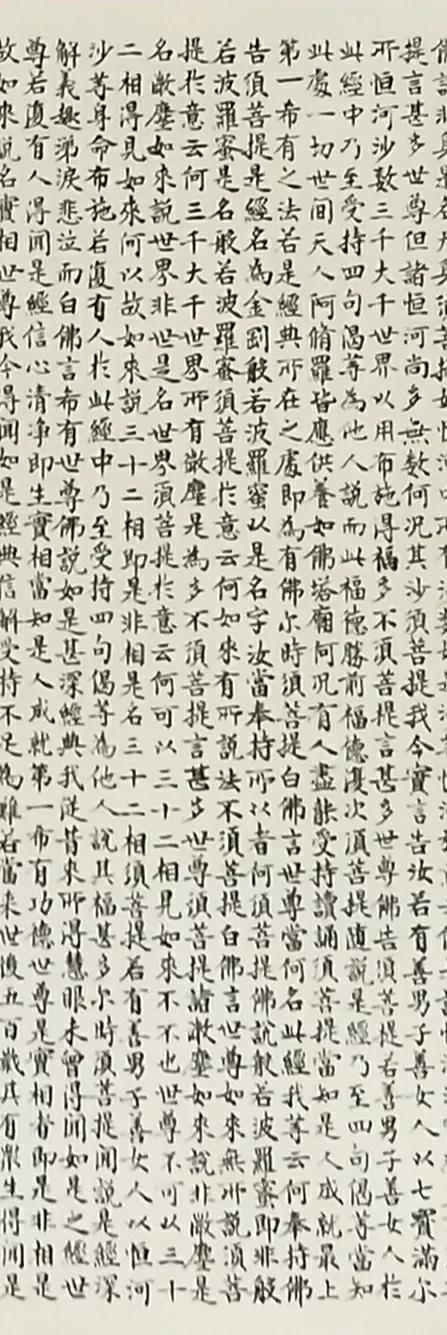 提言甚多世尊但諸恒河尚多無數何況其沙須菩提我今實言告汝若有善男子善女人以七寶滿尔
所恒河沙數三千大千世界以用布施得福多不須菩提言甚多世尊佛告須菩提若善男子善女人於
此經中乃至受持四句偈等為他人說而此福德勝前福德復次須菩提隨說是經乃至四句偈等當知
此處一切世間天人阿脩羅皆應供養如佛塔廟何況有人盡能受持讀誦須菩提當知是人成就最上
第一希有之法若是經典所在之處即為有佛尔時須菩提白佛言世尊當何名此經我等云何奉持佛
告須菩提是經名為金剛般若波羅蜜以是名字汝當奉持所以者何須菩提佛說般若波羅蜜即非般
若波羅蜜是名般若波羅蜜須菩提於意云何如來有所說法不須菩提白佛言世尊如來無所說須菩
提於意云何三千大千世界所有微塵是為多不須菩提言甚多世尊須菩提諸微塵如來說非微塵是
名微塵如來說世界非世是名世界須菩提於意云何可以三十二相見如來不不也世尊不可以三十
二相得見如來何以故如來說三十二相即是非相是名三十二相須菩提若有善男子善女人以恒河
沙等身命布施若復有人於此經中乃至受持四句偈等為他人說其福甚多尔時須菩提聞說是經深
解義趣涕淚悲泣而白佛言希有世尊佛說如是甚深經典我從昔來所得慧眼未曾得聞如是之經世
尊若復有人得聞是經信心清淨即生實相當知是人成就第一希有功德世尊是實相者即是非相是
故如來說名實相世尊我今得聞如是經典信解受持不足為難若當來世後五百歲其有眾生得聞是